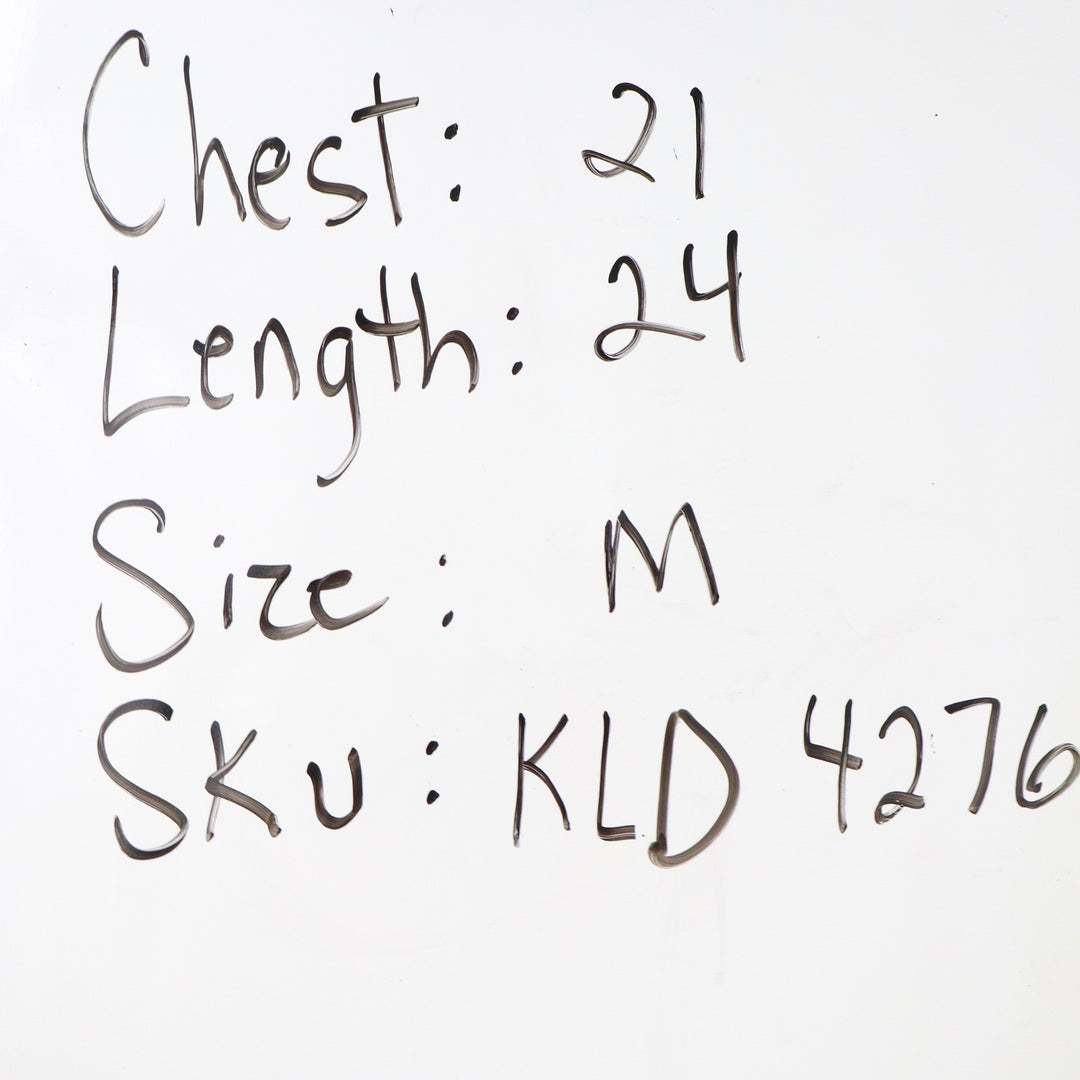 Chest: 21
Length: 24
Size: M
SKU: KLD 4276